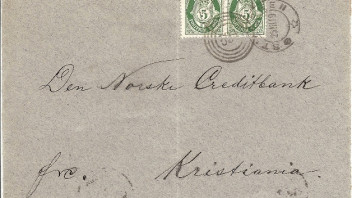 5 5
Den Norske Creditbank
frc. Kristiania.